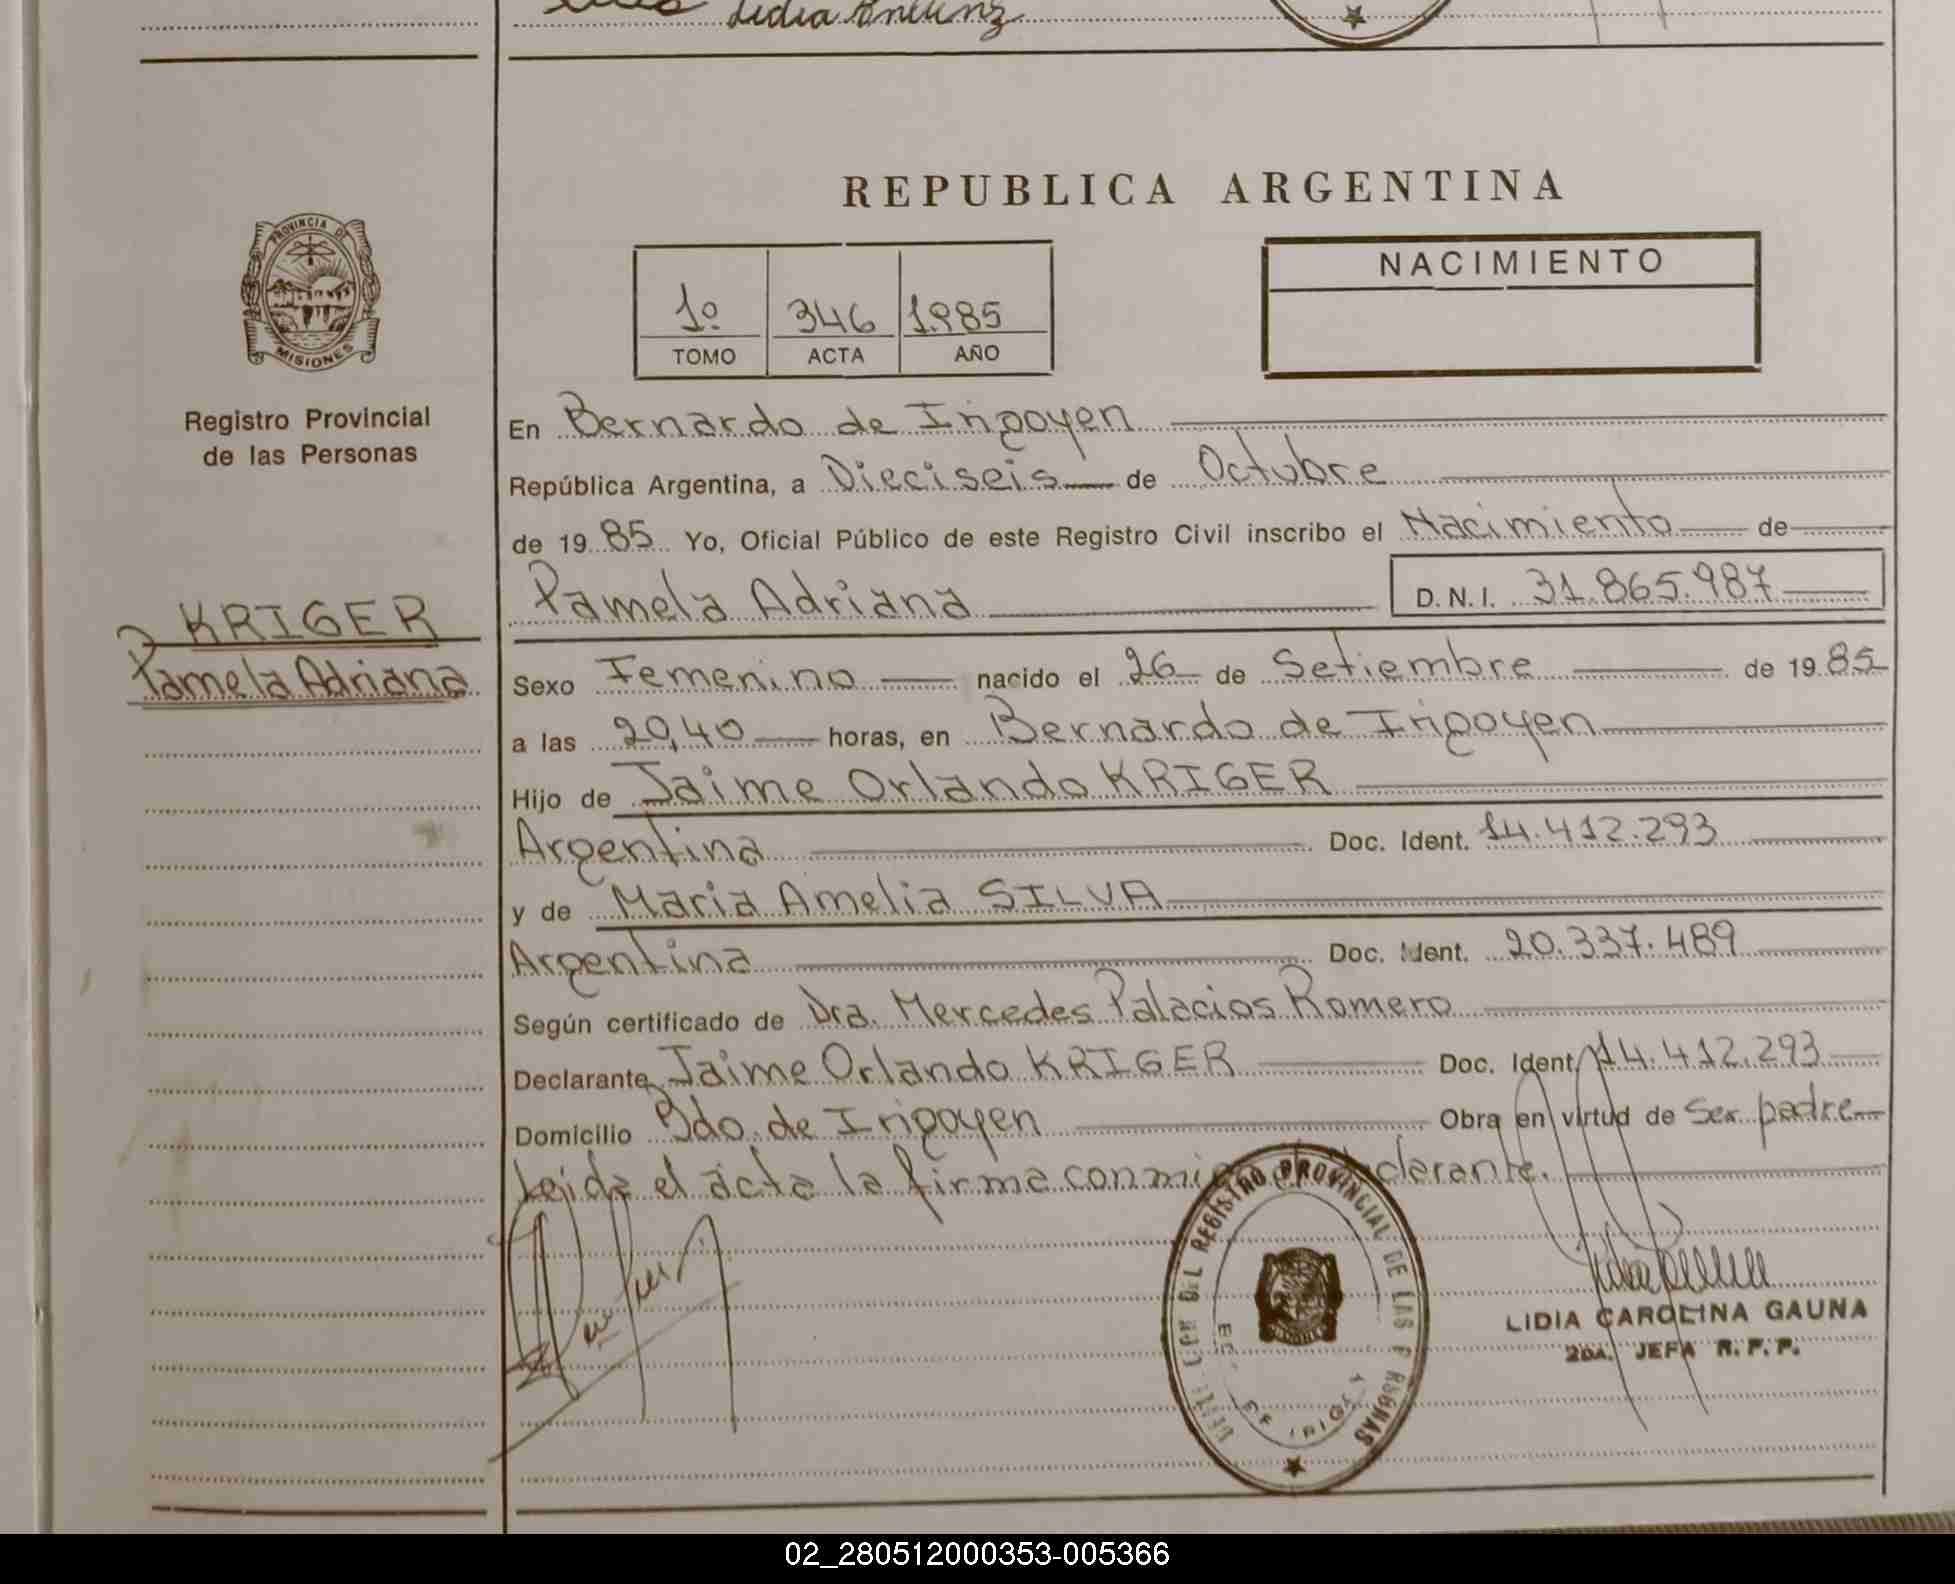 Lidia
REPUBLICA ARGENTINA
PROVINCIA DE
MISIONES
Registro Provincial
de las Personas
1º 346 1985
TOMO ACTA AÑO
NACIMIENTO
En Bernardo de Irigoyen
República Argentina, a Dieciseis de Octubre
de 1985 Yo, Oficial Público de este Registro Civil inscribo el Nacimiento de
KRIGER
Pamela Adriana
Pamela Adriana D.N.I. 31.865.987
Sexo Femenino nacido el 26 de Setiembre de 1985
a las 20,40 horas, en Bernardo de Irigoyen
Hijo de Jaime Orlando KRIGER
Argentina Doc. Ident. 14.412.293
y de Maria Amelia SILVA
Argentina Doc. Ident. 20.337.489
Según certificado de Dra. Mercedes Palacios Romero
Declarante Jaime Orlando KRIGER Doc. Ident. 14.412.293
Domicilio Bdo. de Irigoyen Obra en virtud de Ser padre
Leida el acta la firma conmigo declarante.
DEL REGISTRO PROVINCIAL DE LAS PERSONAS
LIDIA CAROLINA GAUNA
2DA. JEFA R.P.P.
02_280512000353-005366